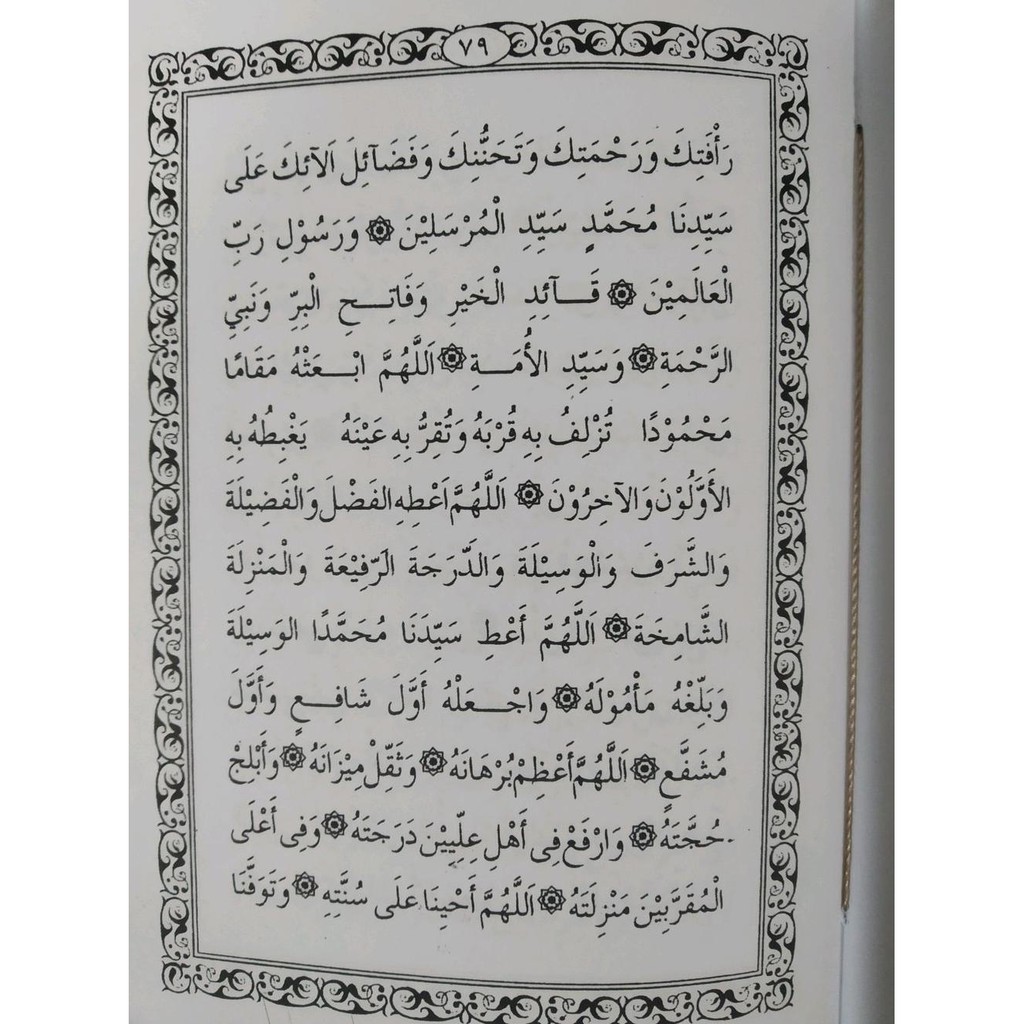 ٧٩
رَأْفَتِكَ وَرَحْمَتِكَ وَتَحَنُّنِكَ وَفَضَآئِلَ اَلآئِكَ عَلَى
سَيِّدِنَا مُحَمَّدٍ سَيِّدِ الْمُرْسَلِيْنَ ۞ وَرَسُوْلِ رَبِّ
الْعَالَمِيْنَ ۞ قَــآئِدِ الْخَيْرِ وَفَاتِــحِ الْبِرِّ وَنَبِيِّ
الرَّحْمَةِ ۞ وَسَيِّدِ الأُمَــةِ ۞ اَللَّهُمَّ ابْــعَثْهُ مَقَامًا
مَحْمُوْدًا تُزْلِفُ بِهِ قُرْبَهُ وَتُقِرُّ بِهِ عَيْنَهُ يَغْبِطُهُ بِهِ
الأَوَّلُوْنَ وَالآخِرُوْنَ ۞ اَللَّهُمَّ اَعْطِهِ الفَضْلَ وَالْفَضِيْلَةَ
وَالشَّرَفَ وَالْوَسِيْلَةَ وَالدَّرَجَةَ الرَّفِيْعَةَ وَالْمَنْزِلَةَ
الشَّامِخَةَ ۞ اَللَّهُمَّ أَعْطِ سَيِّدَنَا مُحَمَّدًا الوَسِيْلَةَ
وَبَلِّغْهُ مَأْمُوْلَهُ ۞ وَاجْــعَلْهُ أَوَّلَ شَافِــعٍ وَأَوَّلَ
مُشَفَّعٍ ۞ اَللَّهُمَّ أَعْظِمْ بُرْهَانَهُ ۞ وَثَقِّلْ مِيْزَانَهُ ۞ وَأَبْلِجْ
حُجَّتَهُ ۞ وَارْفَعْ فِى أَهْلِ عِلِّيِيْنَ دَرَجَتَهُ ۞ وَفِى أَعْلَى
الْمُقَرَّبِيْنَ مَنْزِلَتَهُ ۞ اَللَّهُمَّ أَحْيِنَا عَلَى سُنَّتِهِ ۞ وَتَوَفَّنَا